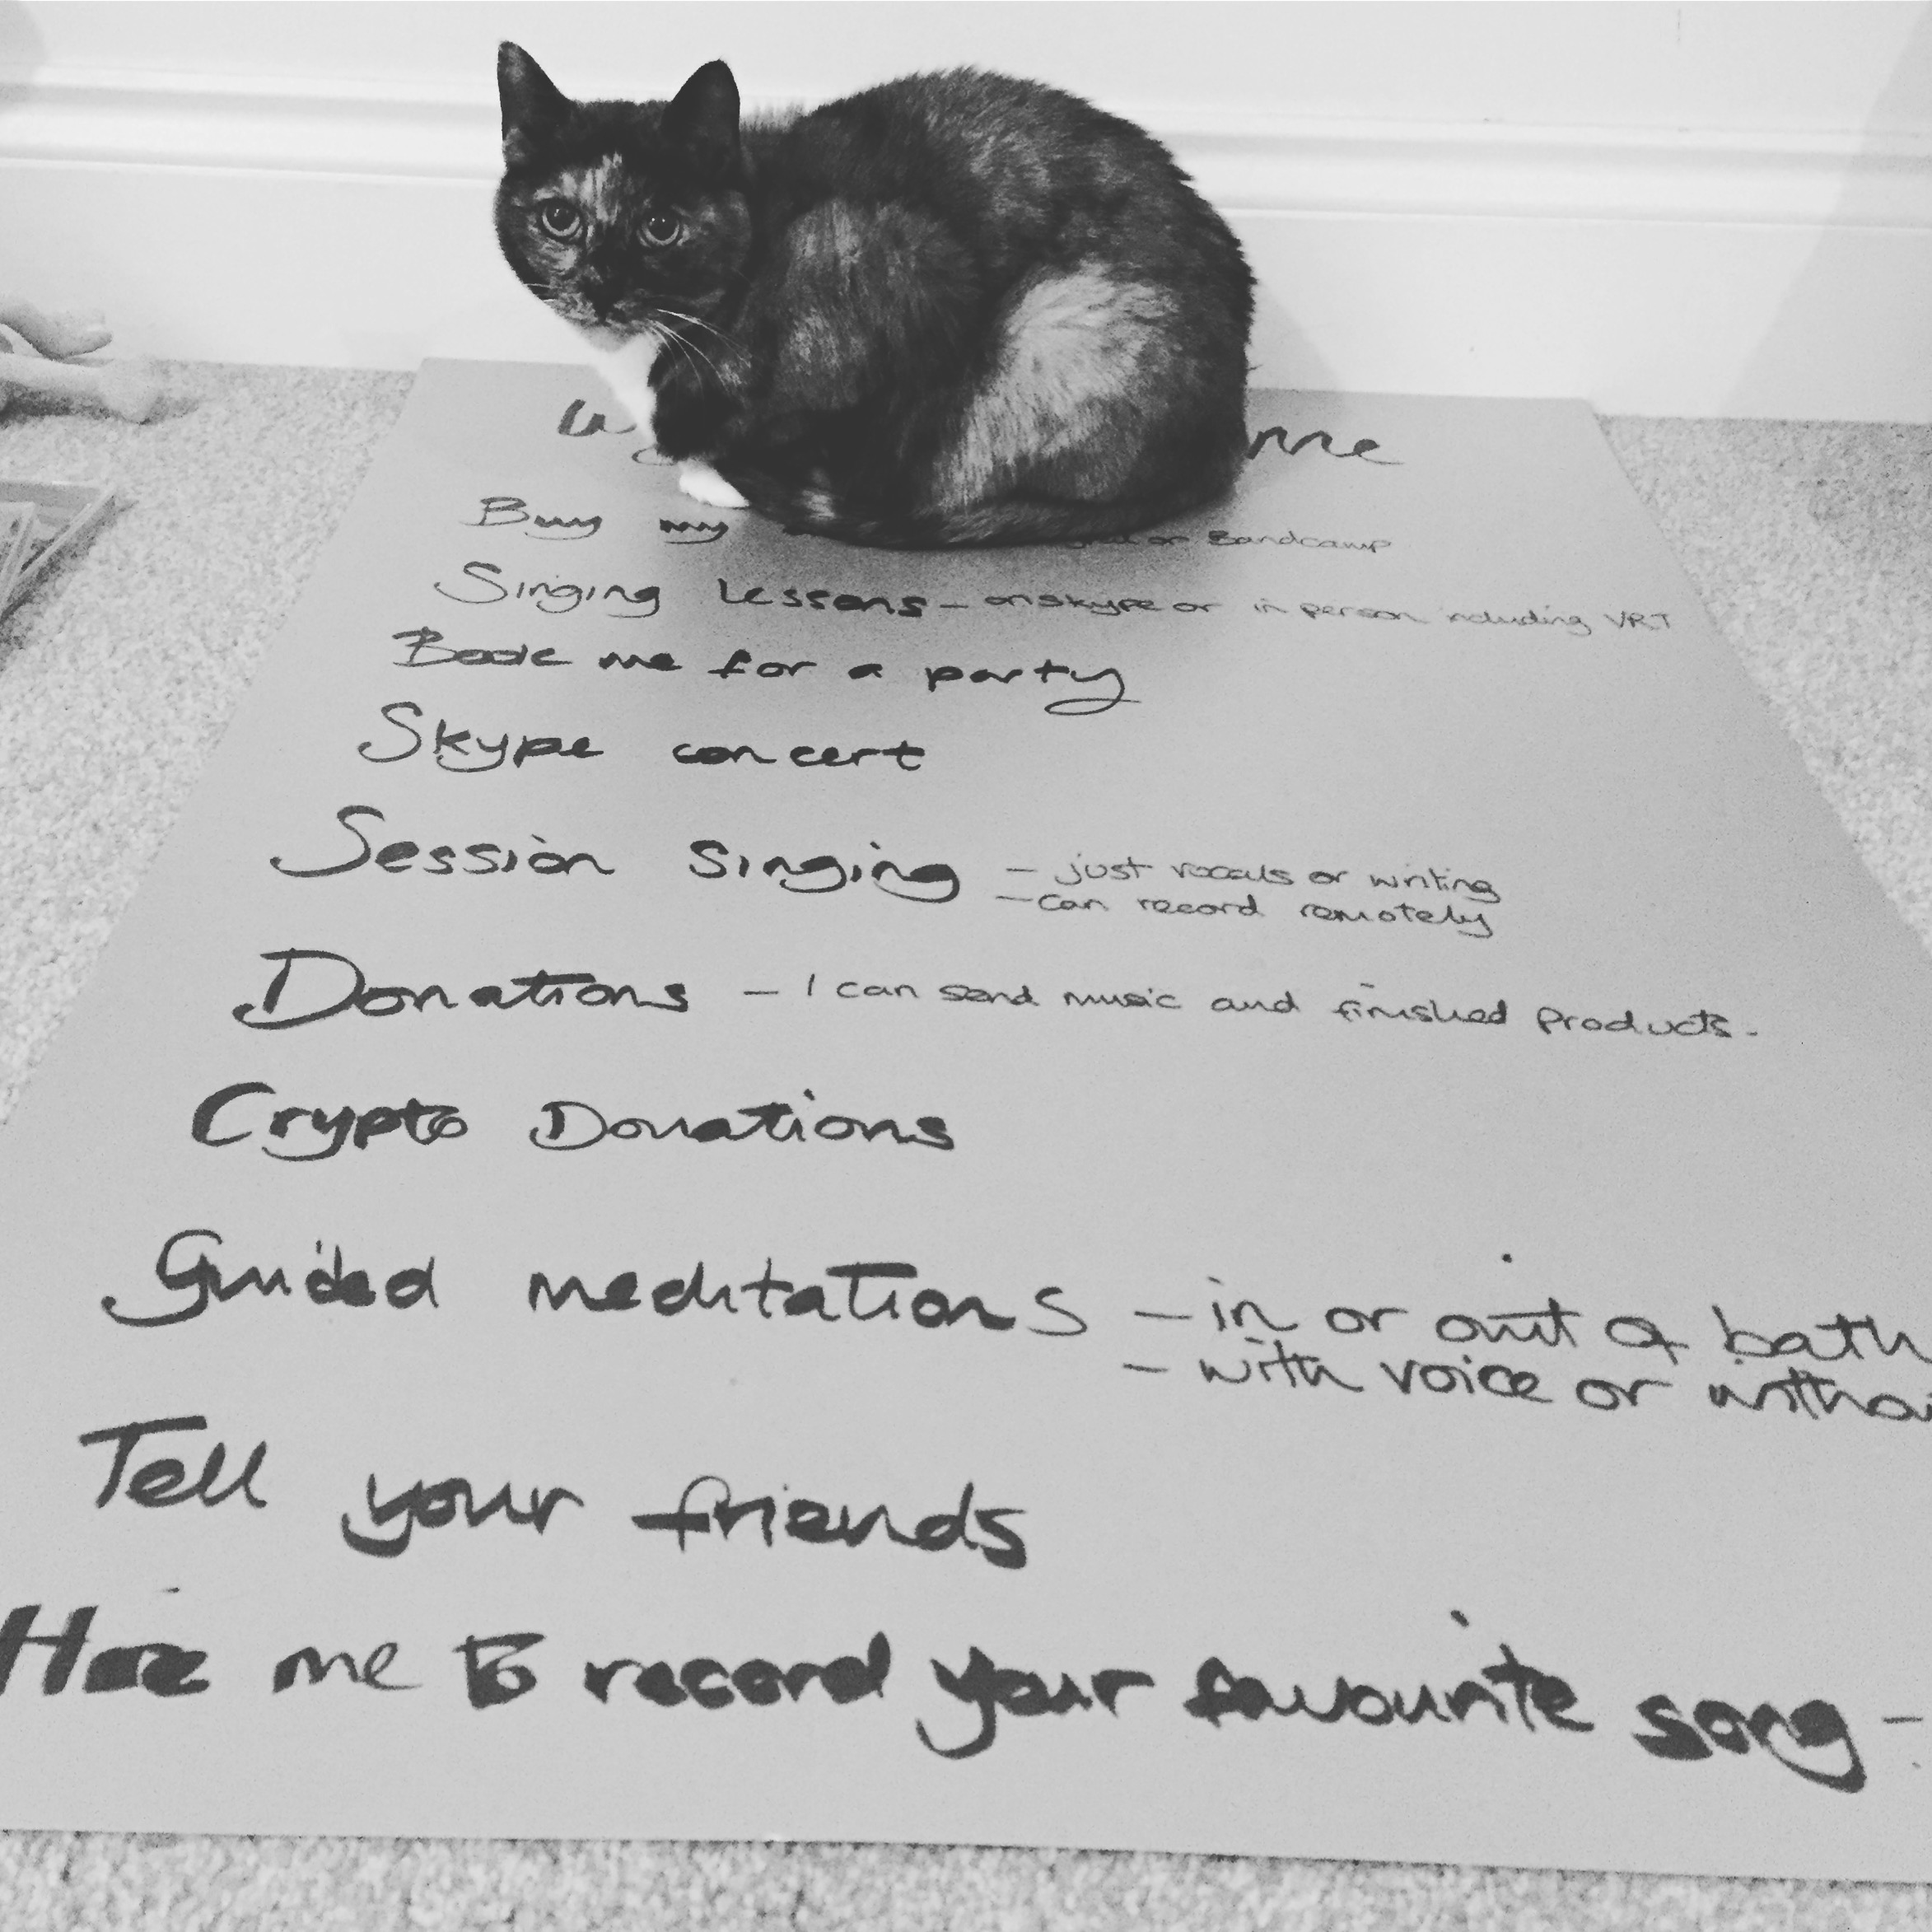 me
Buy my on Bandcamp
Singing Lessons - on skype or in person including VRT
Book me for a party
Skype concert
Session Singing - just vocals or writing
- can record remotely
Donations - I can send music and finished products.
Crypto Donations
Guided meditations - in or out of bath
- with voice or
Tell your friends
Hire me to record your favourite song -